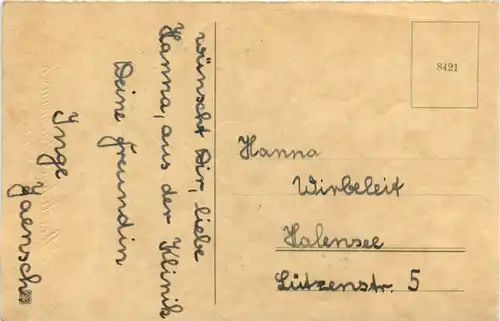 wünscht Dir, liebe
Hanna, aus der Klinik
Deine Freundin
Inge
Jaensch
8421
Hanna
Wirbeleit
Halensee
Lützenstr. 5